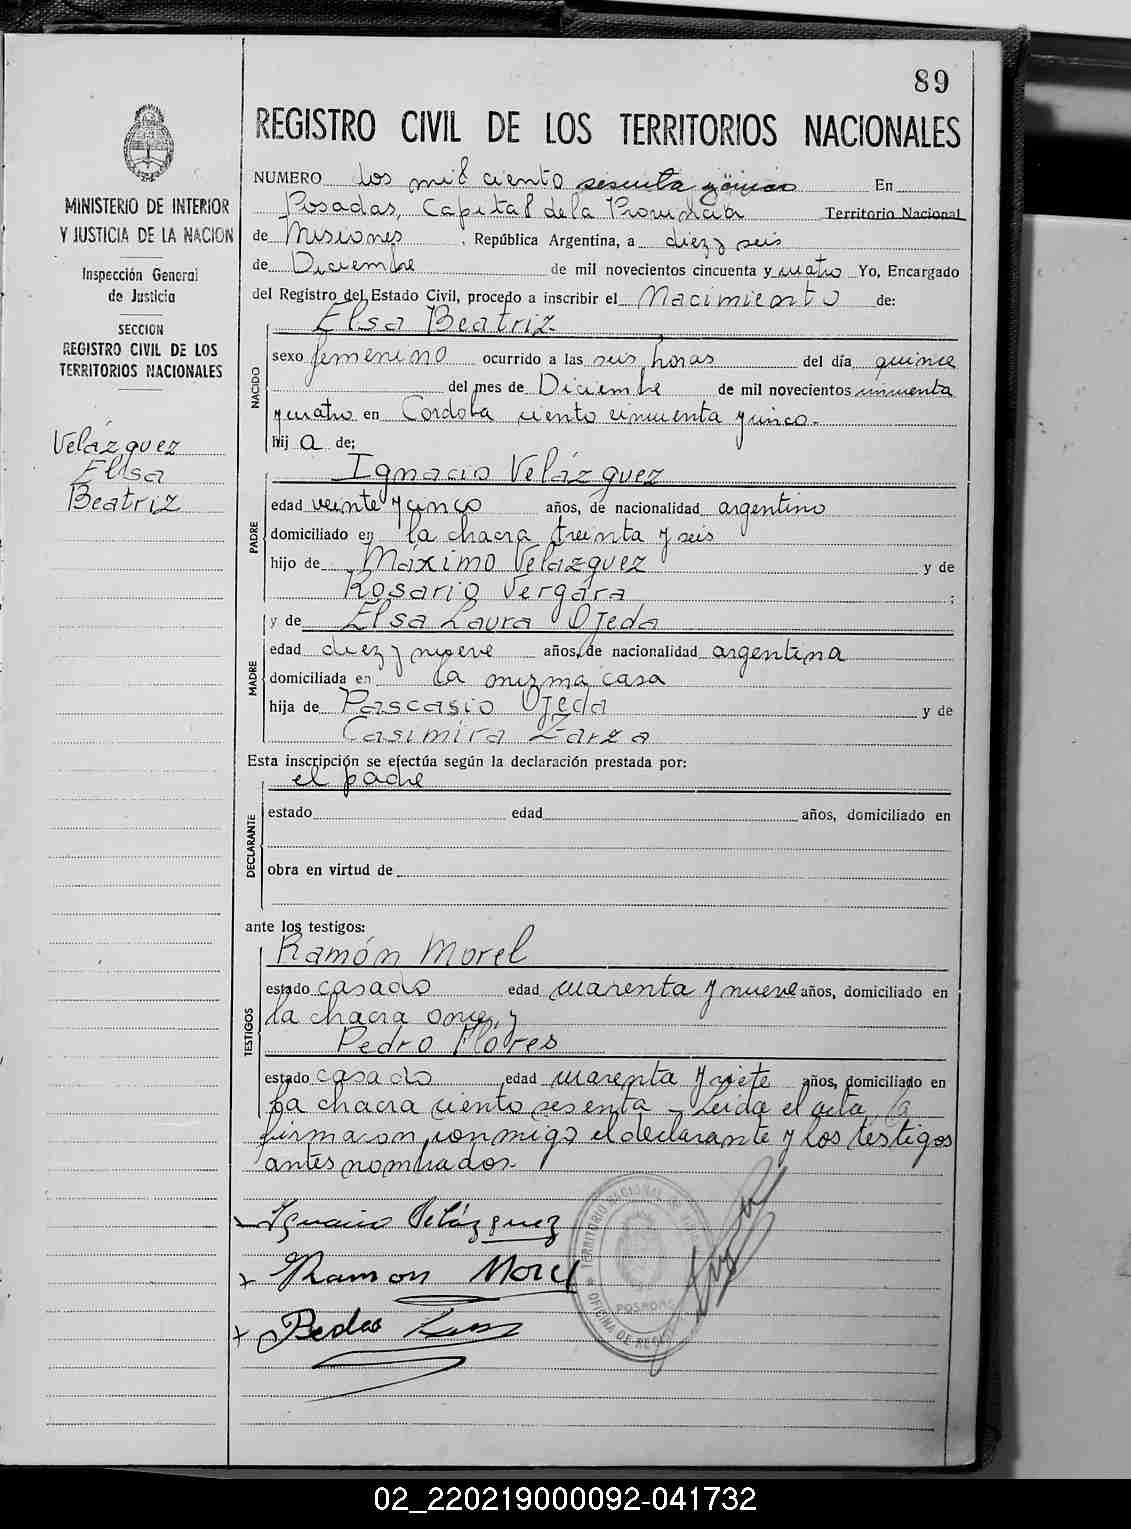 89
REGISTRO CIVIL DE LOS TERRITORIOS NACIONALES
MINISTERIO DE INTERIOR
Y JUSTICIA DE LA NACION
Inspección General
de Justicia
SECCION
REGISTRO CIVIL DE LOS
TERRITORIOS NACIONALES
Velázquez
Elsa
Beatriz
NUMERO dos mil ciento sesenta y cinco En
Posadas, Capital de la Provincia Territorio Nacional
de Misiones, República Argentina, a diez y seis
de Diciembre de mil novecientos cincuenta y cuatro Yo, Encargado
del Registro del Estado Civil, procedo a inscribir el Nacimiento de:
Elsa Beatriz.
NACIDO
sexo femenino ocurrido a las seis horas del día quince
del mes de Diciembre de mil novecientos cincuenta
y cuatro en Cordoba ciento cincuenta y cinco.
hij a de:
Ignacio Velázquez
PADRE
edad veinte y cinco años, de nacionalidad argentino
domiciliado en la chacra treinta y seis
hijo de Máximo Velázquez y de
Rosario Vergara ;
y de Elsa Laura Ojeda
MADRE
edad diez y nueve años, de nacionalidad argentina
domiciliada en la mizma casa
hija de Pascasio Ojeda y de
Casimira Zarza
Esta inscripción se efectúa según la declaración prestada por:
el padre
DECLARANTE
estado edad años, domiciliado en
obra en virtud de
ante los testigos:
Ramón Morel
TESTIGOS
estado casado edad cuarenta y nueve años, domiciliado en
la chacra once, y
Pedro Flores
estado casado edad cuarenta y siete años, domiciliado en
la chacra ciento sesenta - Leida el acta, la
firmaron conmigo el declarante y los testigos
antes nombrados.
Ignacio Velázquez
Ramon Morel
Pedro
TERRITORIO NACIONAL DE
POSADAS
OFICINA DE
02_220219000092-041732